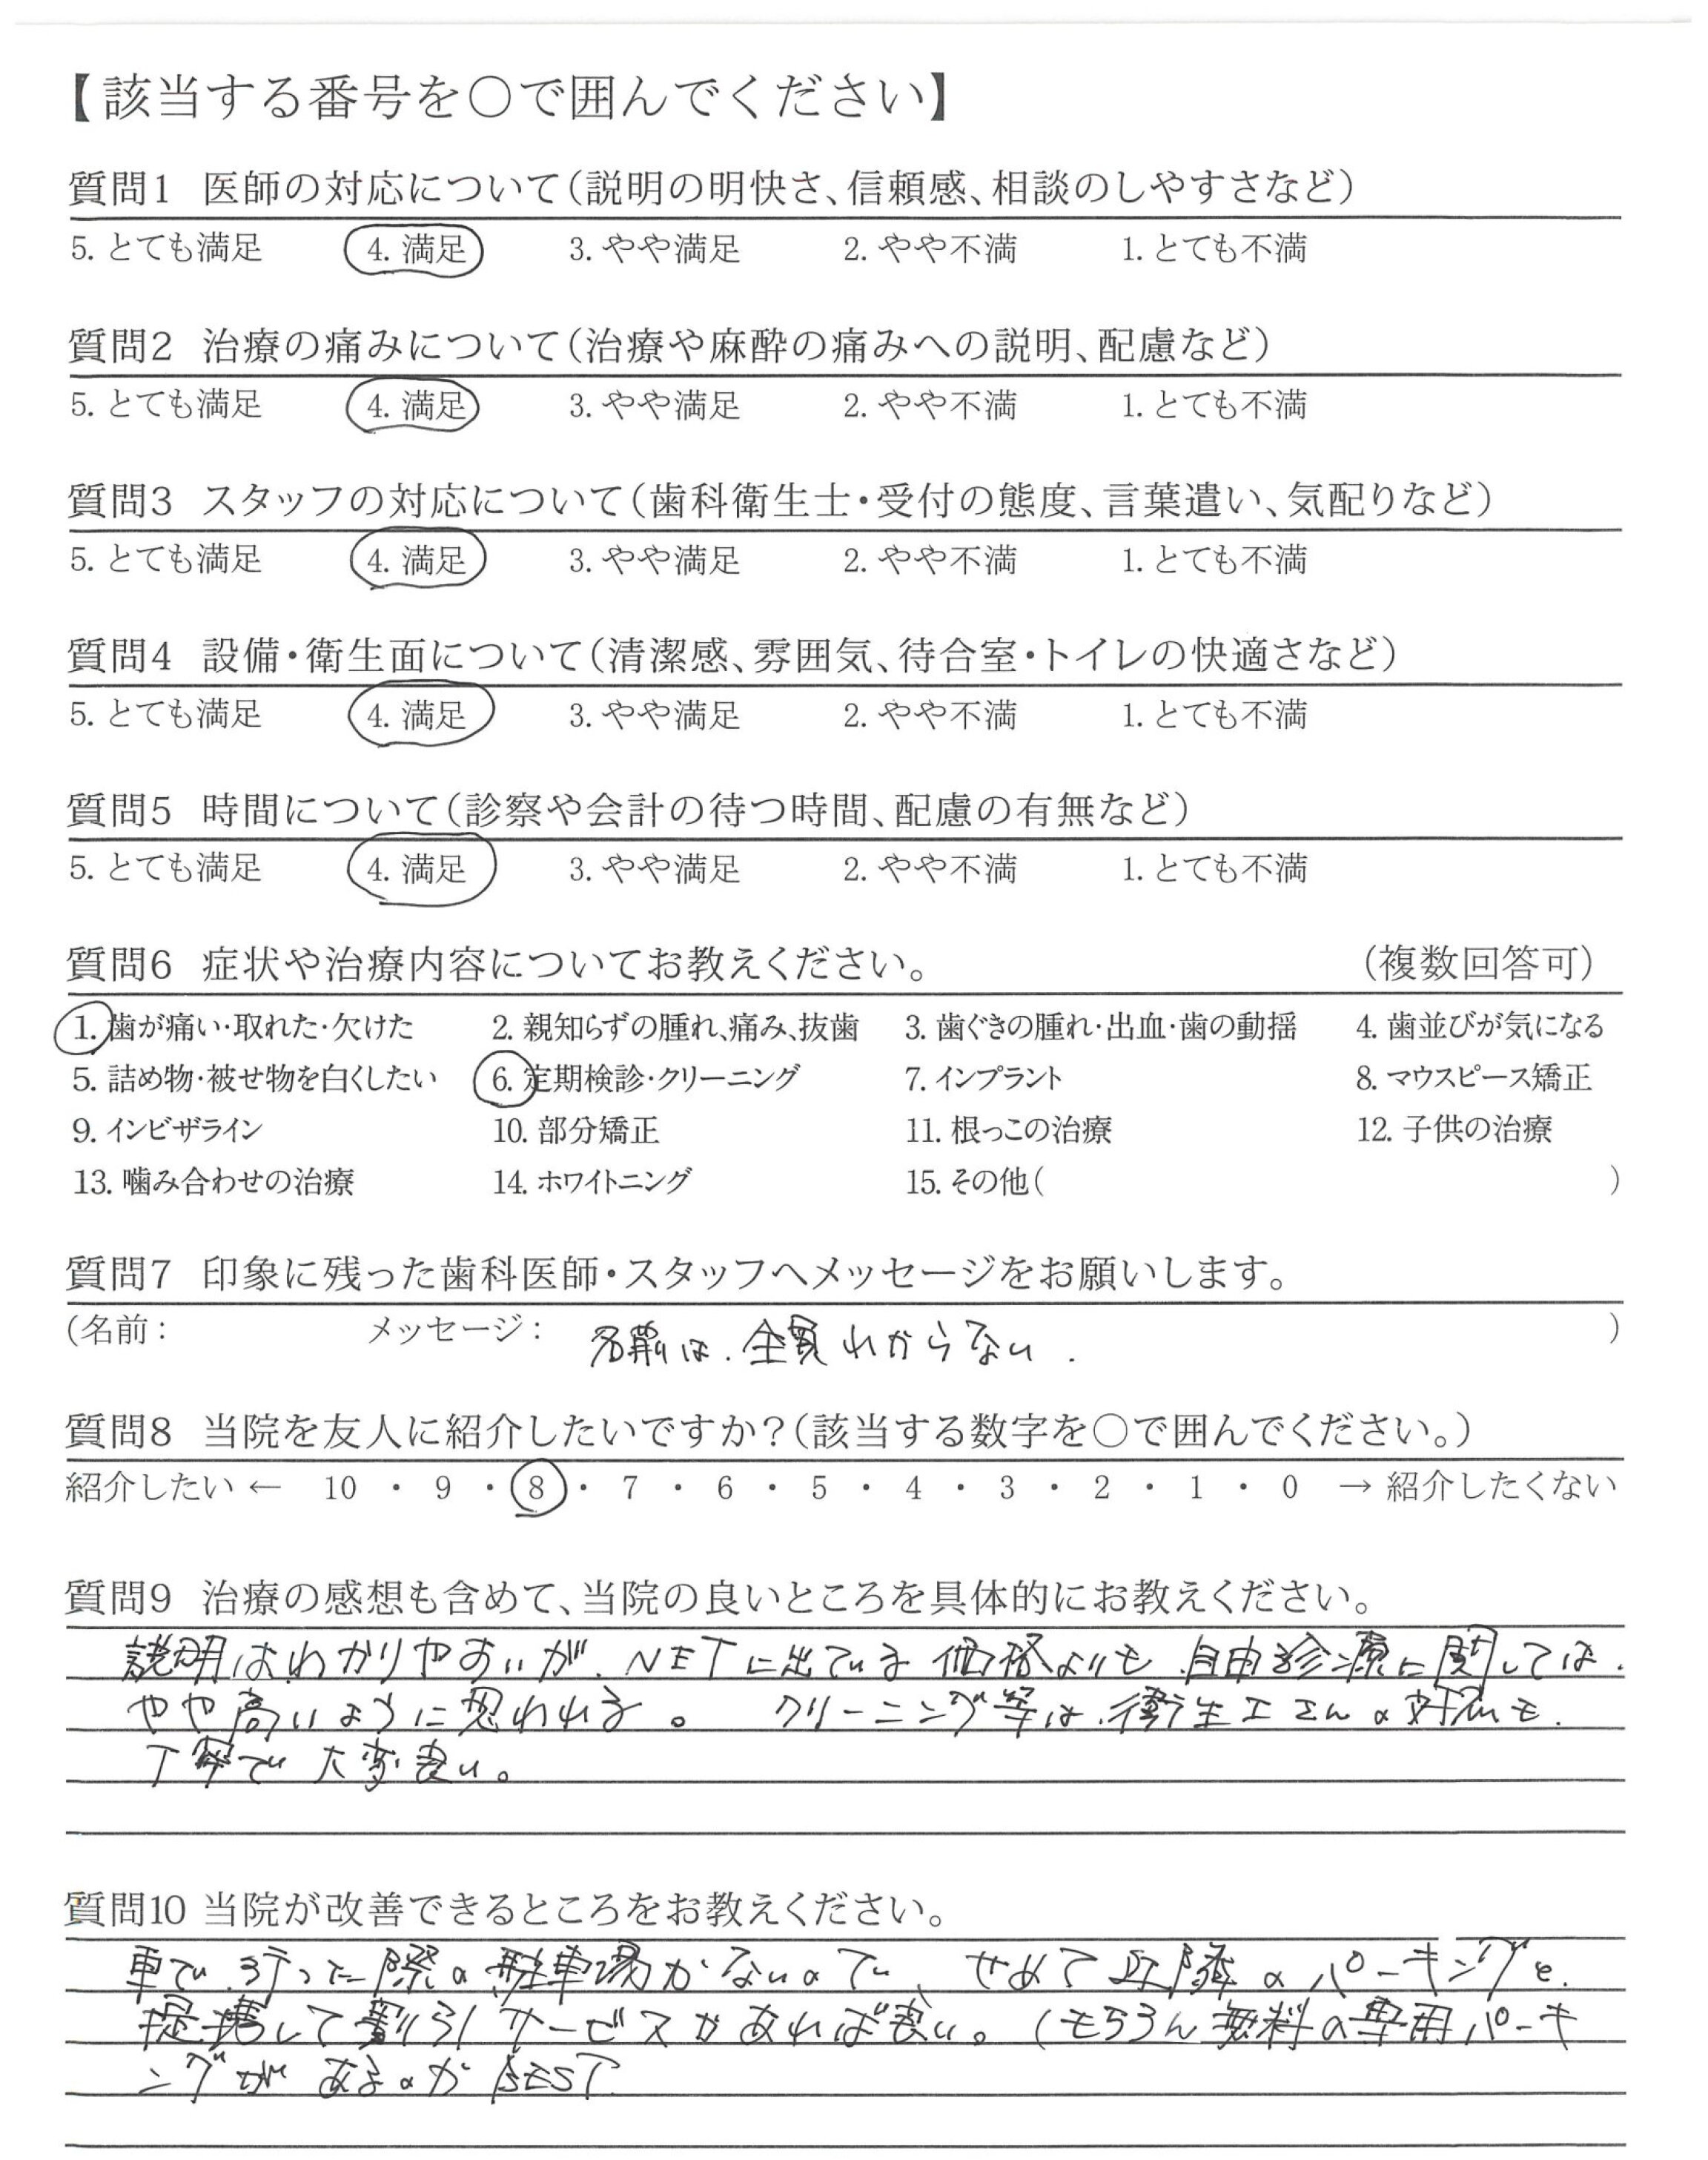 【該当する番号を○で囲んでください】
質問1 医師の対応について(説明の明快さ、信頼感、相談のしやすさなど)
5. とても満足 4. 満足 3. やや満足 2. やや不満 1. とても不満
質問2 治療の痛みについて(治療や麻酔の痛みへの説明、配慮など)
5. とても満足 4. 満足 3. やや満足 2. やや不満 1. とても不満
質問3 スタッフの対応について(歯科衛生士・受付の態度、言葉遣い、気配りなど)
5. とても満足 4. 満足 3. やや満足 2. やや不満 1. とても不満
質問4 設備・衛生面について(清潔感、雰囲気、待合室・トイレの快適さなど)
5. とても満足 4. 満足 3. やや満足 2. やや不満 1. とても不満
質問5 時間について(診察や会計の待つ時間、配慮の有無など)
5. とても満足 4. 満足 3. やや満足 2. やや不満 1. とても不満
質問6 症状や治療内容についてお教えください。 (複数回答可)
1. 歯が痛い・取れた・欠けた 2. 親知らずの腫れ、痛み、抜歯 3. 歯ぐきの腫れ・出血・歯の動揺 4. 歯並びが気になる
5. 詰め物・被せ物を白くしたい 6. 定期検診・クリーニング 7. インプラント 8. マウスピース矯正
9. インビザライン 10. 部分矯正 11. 根っこの治療 12. 子供の治療
13. 噛み合わせの治療 14. ホワイトニング 15. その他( )
質問7 印象に残った歯科医師・スタッフへメッセージをお願いします。
(名前: メッセージ: 名前は、全員わからない. )
質問8 当院を友人に紹介したいですか?(該当する数字を○で囲んでください。)
紹介したい ← 10 ・ 9 ・ 8 ・ 7 ・ 6 ・ 5 ・ 4 ・ 3 ・ 2 ・ 1 ・ 0 → 紹介したくない
質問9 治療の感想も含めて、当院の良いところを具体的にお教えください。
説明はわかりやすいが、NETに出ている価格よりも、自由診療に関しては、
やや高いように思われる。 クリーニング等は、衛生士さんの対応も、
丁寧で大変良い。
質問10 当院が改善できるところをお教えください。
車で行った際の駐車場がないので、せめて近隣のパーキングと、
提携して割引サービスがあれば良い。(もちろん無料の専用パーキ
ングがあるのがBEST